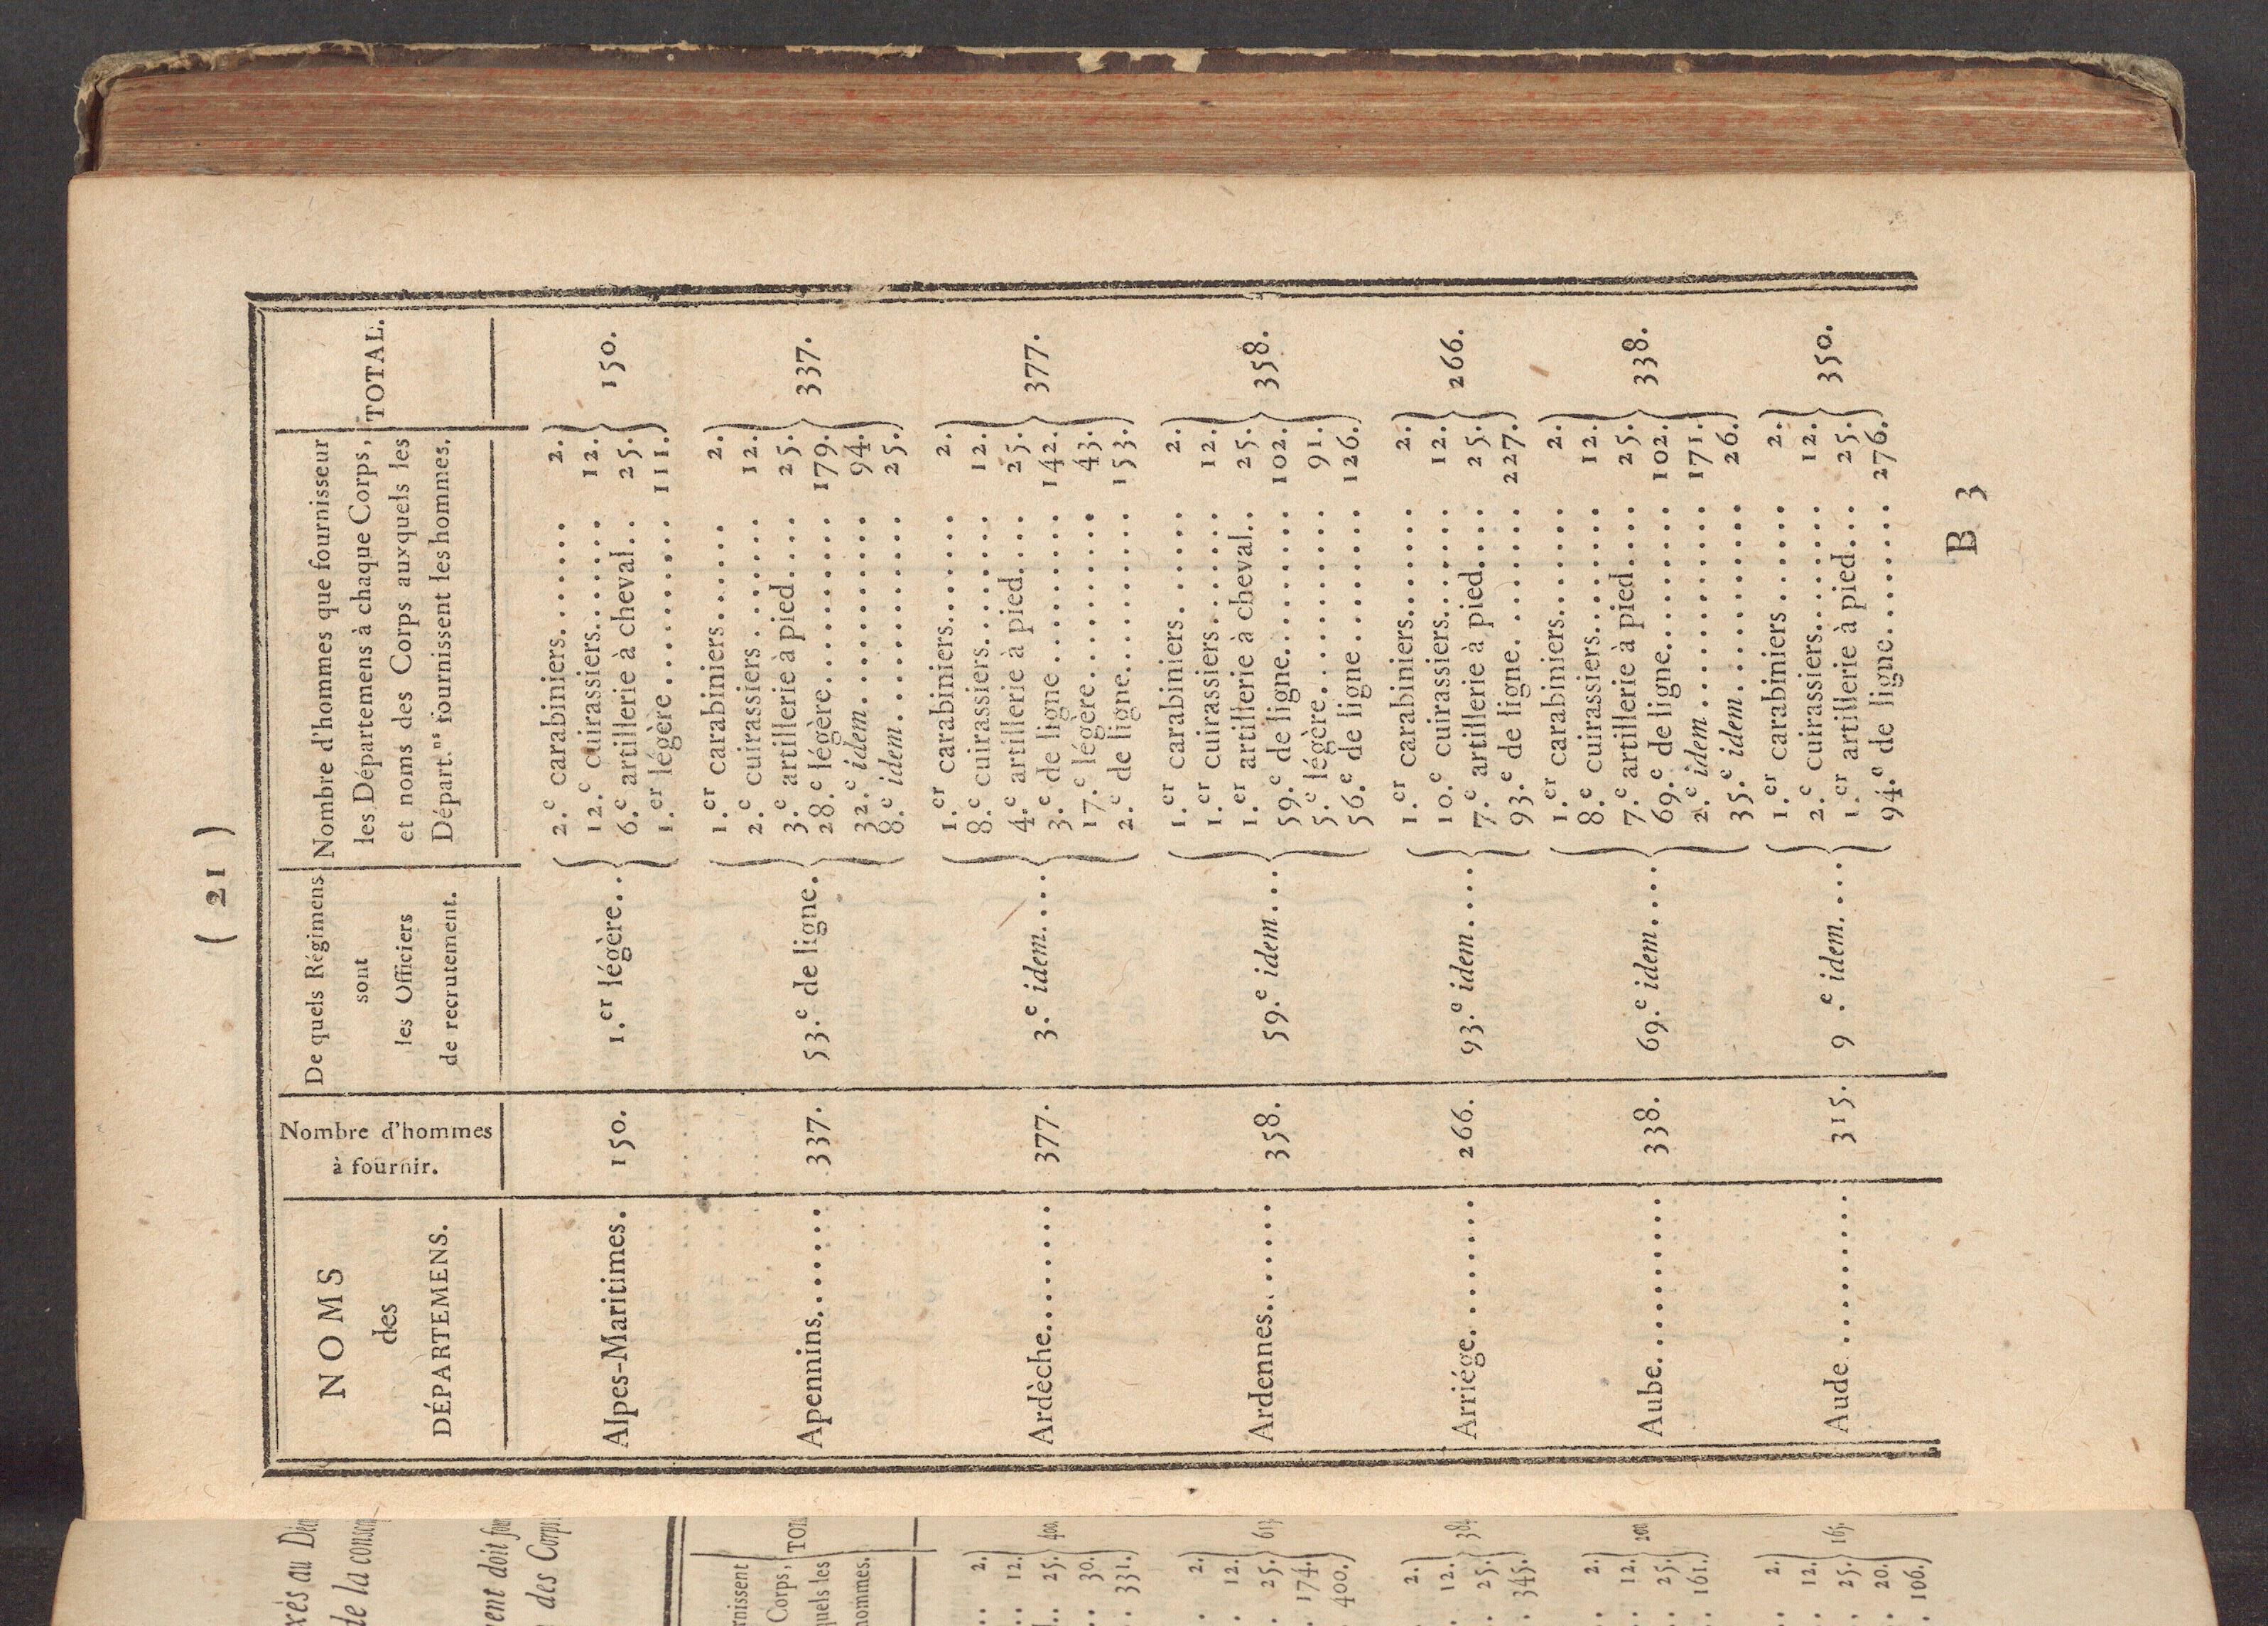 ( 21 )
NOMS
des
DÉPARTEMENS.
Nombre d'hommes
à fournir.
De quels Régimens
sont
les Officiers
de recrutement.
Nombre d'hommes que fournisseur
les Départemens à chaque Corps,
et noms des Corps auxquels les
Départ.ns fournissent les hommes.
TOTAL.
Alpes-Maritimes. 150. 1.er légère... 150.
2.e carabiniers....... 2.
12.e cuirassiers....... 12.
6.e artillerie à cheval.. 25.
1.er légère.......... 111.
Apennins....... 337. 53.e de ligne. 337.
1.er carabiniers....... 2.
2.e cuirassiers........ 12.
3.e artillerie à pied.... 25.
28.e légère.......... 179.
32.e idem........... 94.
8.e idem........... 25.
Ardèche........ 377. 3.e idem.... 377.
1.er carabiniers....... 2.
8.e cuirassiers........ 12.
4.e artillerie à pied.... 25.
3.e de ligne......... 142.
17.e légère.......... 43.
2.e de ligne......... 153.
Ardennes....... 358. 59.e idem.... 358.
1.er carabiniers...... 2.
1.er cuirassiers....... 12.
1.er artillerie à cheval.. 25.
59.e de ligne......... 102.
5.e légère.......... 91.
56.e de ligne......... 126.
Arriége........ 266. 93.e idem..... 266.
1.er carabiniers....... 2.
10.e cuirassiers....... 12.
7.e artillerie à pied.... 25.
93.e de ligne........ 227.
Aube........... 338. 69.e idem.... 338.
1.er carabiniers....... 2.
8.e cuirassiers........ 12.
7.e artillerie à pied.... 25.
69.e de ligne......... 102.
2.e idem........... 171.
35.e idem........... 26.
Aude.......... 315. 9 .e idem.... 350.
1.er carabiniers...... 2.
2.e cuirassiers........ 12.
1.er artillerie à pied... 25.
94.e de ligne........ 276.
B 3
de la
doit
des Corps
Corps,
quels les
hommes.
2.
12.
25.
30.
331.
400.
2.
12.
25.
174.
400.
2.
12.
25.
345.
2.
12.
25.
161.
2.
12.
25.
20.
106.
165.